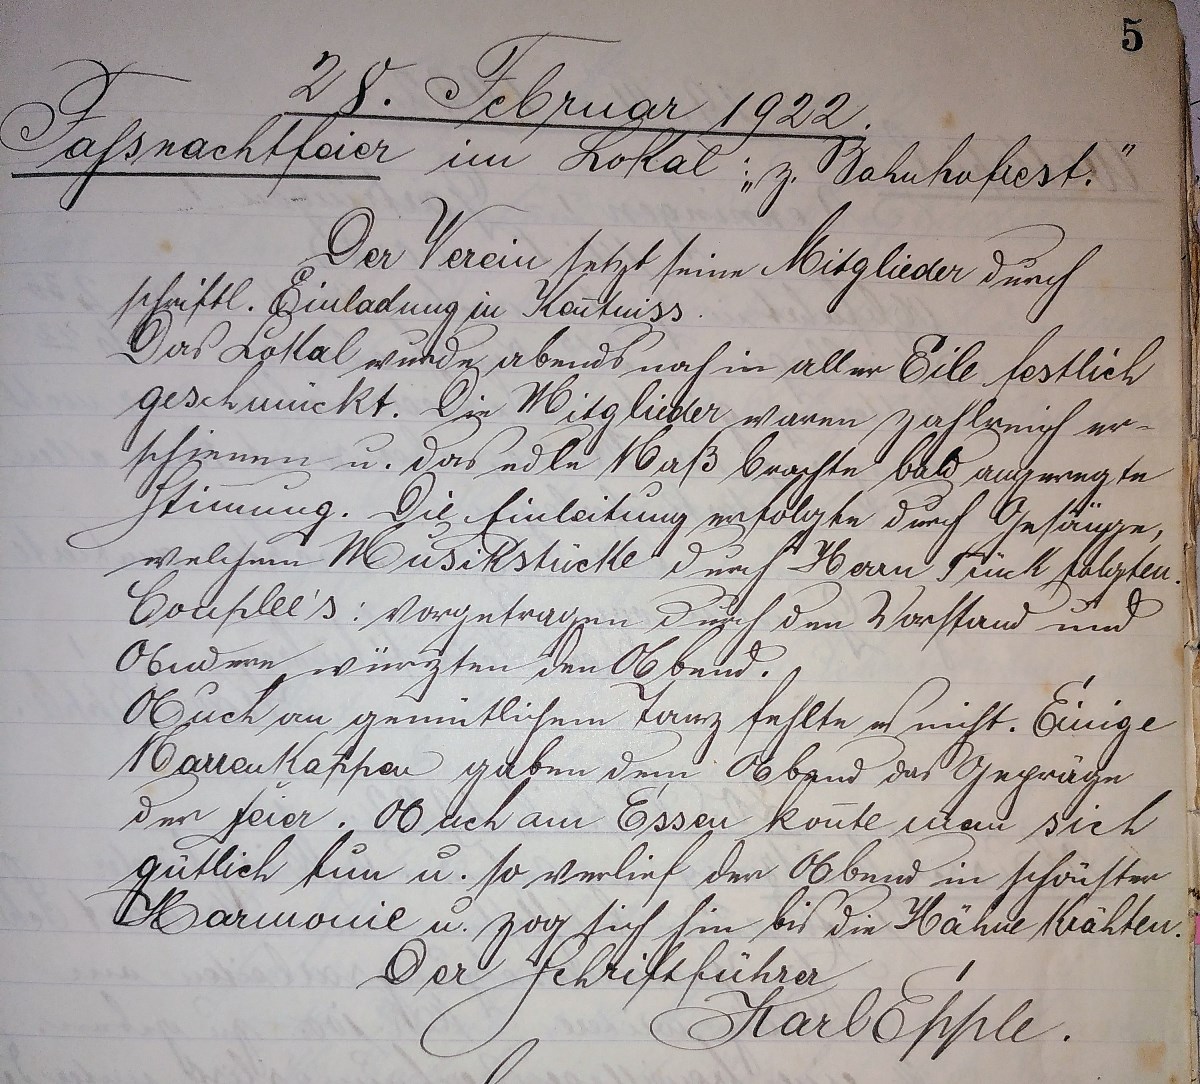 5
28. Februar 1922.
Faßnachtfeier im Lokal: „z. Bahnhofrest."
Der Verein setzt seine Mitglieder durch
schriftl. Einladung in Keñtniss.
Das Lokal wurde abends noch in aller Eile festlich
geschmückt. Die Mitglieder waren zahlreich er-
schienen u. das edle Naß brachte bald angeregte
Stim̄ung. Die Einleitung erfolgte durch Gesänge,
welchem Musikstücke durch Herrn Tück folgten.
Couplee's: vorgetragen durch den Vorstand und
Andere würzten den Abend.
Auch an gemütlichem Tanz fehlte es nicht. Einige
Narrenkappen gaben dem Abend das Gepräge
der Feier. Auch am Essen koñte man sich
gütlich tun u. so verlief der Abend in schönster
Harmonie u. zog sich hin bis die Hähne krähten.
Der Schriftführer
Karl Epple.